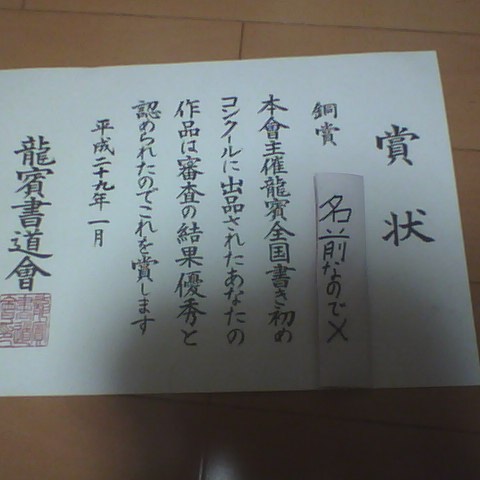 賞状
銅賞
名前なので×
本會主催龍賓全国書き初め
コンクルに出品されたあなたの
作品は審査の結果優秀と
認められたのでこれを賞します
平成二十九年一月
龍賓書道會